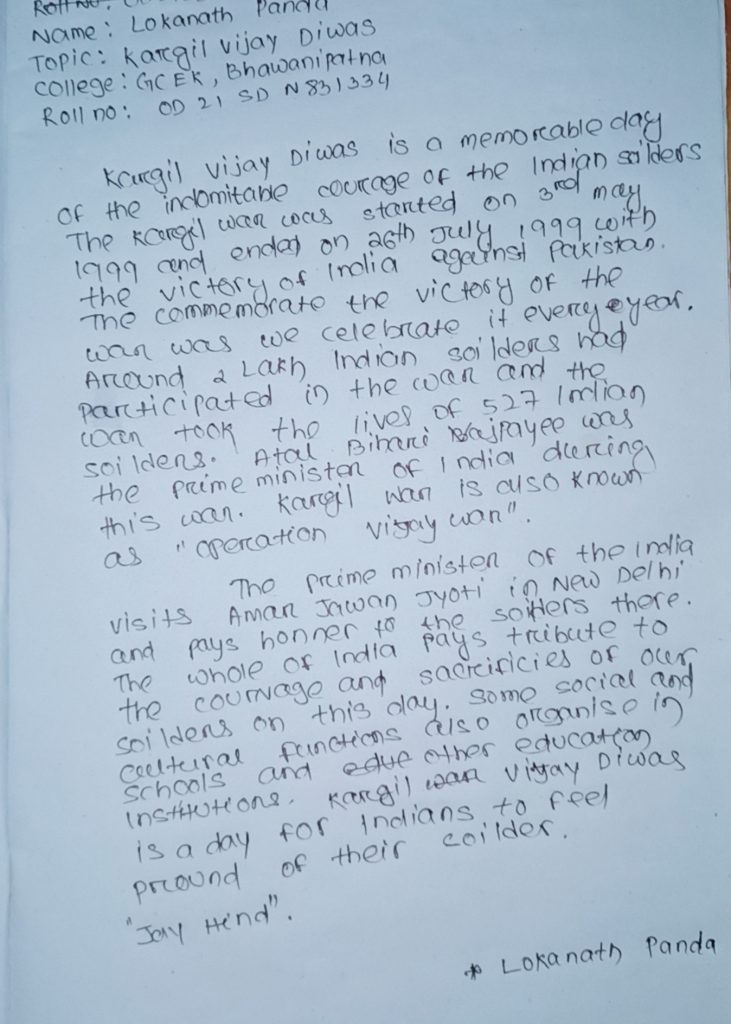 Roll No:
Name: Lokanath Panda
Topic: Kargil Vijay Diwas
College: GCEK, Bhawanipatna
Roll no: OD 21 SD N 831334
Kargil Vijay Diwas is a memorable day
of the indomitable courage of the Indian soilders
The Kargil war was started on 3rd may
1999 and ended on 26th July 1999 with
the victory of India against Pakistan.
The commemorate the victory of the
war was we celebrate it every year.
Around 2 Lakh Indian soilders had
participated in the war and the
war took the lives of 527 Indian
soilders. Atal Bihari Bajpayee was
the prime minister of India during
this war. Kargil war is also known
as "operation vijay war".
The prime minister of the india
visits Amar Jawan Jyoti in New Delhi
and pays honner to the soilders there.
The whole of India pays tribute to
the courvage and sacricificies of our
soilders on this day. Some social and
cultural functions also organise in
schools and edue other education
institutions. Kargil war Vijay Diwas
is a day for Indians to feel
pround of their coilder.
"Jay Hind".
* Lokanath Panda